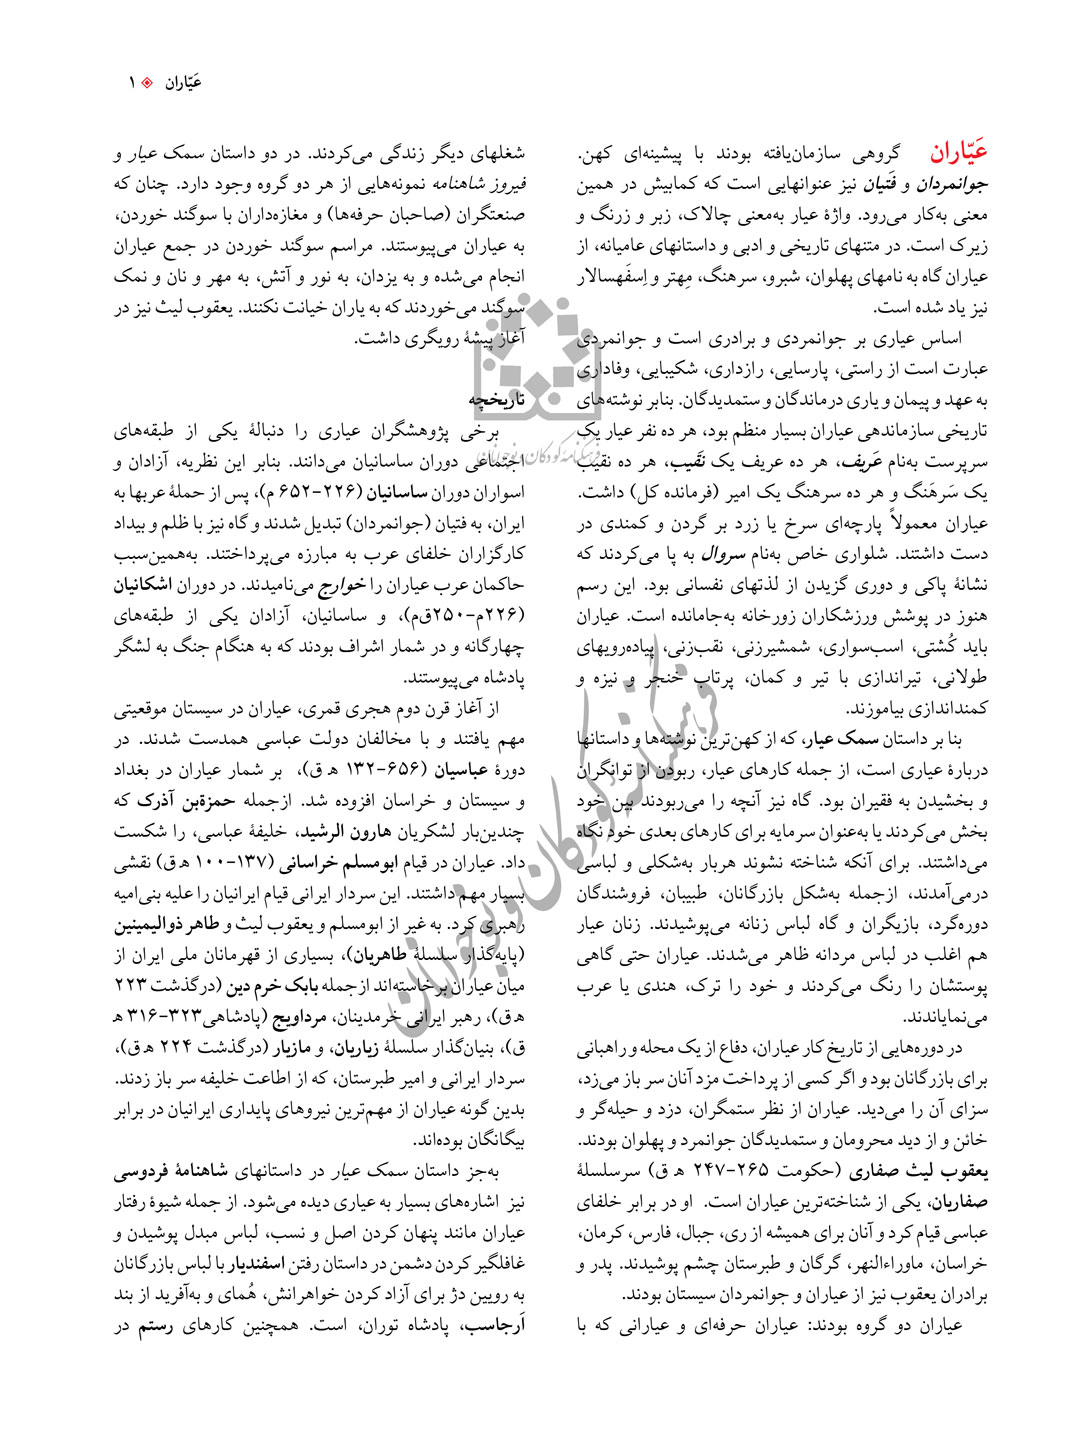 عَیّاران ۱
عَیّاران گروهی سازمان‌یافته بودند با پیشینه‌ای کهن.
جوانمردان و فَتیان نیز عنوانهایی است که کمابیش در همین
معنی به‌کار می‌رود. واژهٔ عیار به‌معنی چالاک، زبر و زرنگ و
زیرک است. در متنهای تاریخی و ادبی و داستانهای عامیانه، از
عیاران گاه به نامهای پهلوان، شبرو، سرهنگ، مِهتر و اِسفَهسالار
نیز یاد شده است.
اساس عیاری بر جوانمردی و برادری است و جوانمردی
عبارت است از راستی، پارسایی، رازداری، شکیبایی، وفاداری
به عهد و پیمان و یاری درماندگان و ستمدیدگان. بنابر نوشته‌های
تاریخی سازماندهی عیاران بسیار منظم بود، هر ده نفر عیار یک
سرپرست به‌نام عَریف، هر ده عریف یک نَقَیب، هر ده نقیب
یک سَرهَنگ و هر ده سرهنگ یک امیر (فرمانده کل) داشت.
عیاران معمولاً پارچه‌ای سرخ یا زرد بر گردن و کمندی در
دست داشتند. شلواری خاص به‌نام سروال به پا می‌کردند که
نشانهٔ پاکی و دوری گزیدن از لذتهای نفسانی بود. این رسم
هنوز در پوشش ورزشکاران زورخانه به‌جامانده است. عیاران
باید کُشتی، اسب‌سواری، شمشیرزنی، نقب‌زنی، پیاده‌رویهای
طولانی، تیراندازی با تیر و کمان، پرتاب خنجر و نیزه و
کمنداندازی بیاموزند.
بنا بر داستان سمک عیار، که از کهن‌ترین نوشته‌ها و داستانها
دربارهٔ عیاری است، از جمله کارهای عیار، ربودن از توانگران
و بخشیدن به فقیران بود. گاه نیز آنچه را می‌ربودند بین خود
بخش می‌کردند یا به‌عنوان سرمایه برای کارهای بعدی خود نگاه
می‌داشتند. برای آنکه شناخته نشوند هربار به‌شکلی و لباسی
درمی‌آمدند، ازجمله به‌شکل بازرگانان، طبیبان، فروشندگان
دوره‌گرد، بازیگران و گاه لباس زنانه می‌پوشیدند. زنان عیار
هم اغلب در لباس مردانه ظاهر می‌شدند. عیاران حتی گاهی
پوستشان را رنگ می‌کردند و خود را ترک، هندی یا عرب
می‌نمایاندند.
در دوره‌هایی از تاریخ کار عیاران، دفاع از یک محله و راهبانی
برای بازرگانان بود و اگر کسی از پرداخت مزد آنان سر باز می‌زد،
سزای آن را می‌دید. عیاران از نظر ستمگران، دزد و حیله‌گر و
خائن و از دید محرومان و ستمدیدگان جوانمرد و پهلوان بودند.
یعقوب لیث صفاری (حکومت ۲۶۵-۲۴۷ ه‍ ق) سرسلسلهٔ
صفاریان، یکی از شناخته‌ترین عیاران است. او در برابر خلفای
عباسی قیام کرد و آنان برای همیشه از ری، جبال، فارس، کرمان،
خراسان، ماوراءالنهر، گرگان و طبرستان چشم پوشیدند. پدر و
برادران یعقوب نیز از عیاران و جوانمردان سیستان بودند.
عیاران دو گروه بودند: عیاران حرفه‌ای و عیارانی که با
شغلهای دیگر زندگی می‌کردند. در دو داستان سمک عیار و
فیروز شاهنامه نمونه‌هایی از هر دو گروه وجود دارد. چنان که
صنعتگران (صاحبان حرفه‌ها) و مغازه‌داران با سوگند خوردن،
به عیاران می‌پیوستند. مراسم سوگند خوردن در جمع عیاران
انجام می‌شده و به یزدان، به نور و آتش، به مهر و نان و نمک
سوگند می‌خوردند که به یاران خیانت نکنند. یعقوب لیث نیز در
آغاز پیشهٔ رویگری داشت.
تاریخچه
برخی پژوهشگران عیاری را دنبالهٔ یکی از طبقه‌های
اجتماعی دوران ساسانیان می‌دانند. بنابر این نظریه، آزادان و
اسواران دوران ساسانیان (۲۲۶-۶۵۲ م)، پس از حملهٔ عربها به
ایران، به فتیان (جوانمردان) تبدیل شدند و گاه نیز با ظلم و بیداد
کارگزاران خلفای عرب به مبارزه می‌پرداختند. به‌همین‌سبب
حاکمان عرب عیاران را خوارج می‌نامیدند. در دوران اشکانیان
(۲۲۶م-۲۵۰ق‌م)، و ساسانیان، آزادان یکی از طبقه‌های
چهارگانه و در شمار اشراف بودند که به هنگام جنگ به لشگر
پادشاه می‌پیوستند.
از آغاز قرن دوم هجری قمری، عیاران در سیستان موقعیتی
مهم یافتند و با مخالفان دولت عباسی همدست شدند. در
دورهٔ عباسیان (۶۵۶-۱۳۲ ه‍ ق)، بر شمار عیاران در بغداد
و سیستان و خراسان افزوده شد. ازجمله حمزةبن آذرک که
چندین‌بار لشکریان هارون الرشید، خلیفهٔ عباسی، را شکست
داد. عیاران در قیام ابومسلم خراسانی (۱۳۷-۱۰۰ ه‍ ق) نقشی
بسیار مهم داشتند. این سردار ایرانی قیام ایرانیان را علیه بنی‌امیه
رهبری کرد. به غیر از ابومسلم و یعقوب لیث و طاهر ذوالیمینین
(پایه‌گذار سلسلهٔ طاهریان)، بسیاری از قهرمانان ملی ایران از
میان عیاران برخاسته‌اند ازجمله بابک خرم دین (درگذشت ۲۲۳
ه‍ ق)، رهبر ایرانی خرمدینان، مرداویج (پادشاهی۳۲۳-۳۱۶ ه‍
ق)، بنیان‌گذار سلسلهٔ زیاریان، و مازیار (درگذشت ۲۲۴ ه‍ ق)،
سردار ایرانی و امیر طبرستان، که از اطاعت خلیفه سر باز زدند.
بدین گونه عیاران از مهم‌ترین نیروهای پایداری ایرانیان در برابر
بیگانگان بوده‌اند.
به‌جز داستان سمک عیار در داستانهای شاهنامهٔ فردوسی
نیز اشاره‌های بسیار به عیاری دیده می‌شود. از جمله شیوهٔ رفتار
عیاران مانند پنهان کردن اصل و نسب، لباس مبدل پوشیدن و
غافلگیر کردن دشمن در داستان رفتن اسفندیار با لباس بازرگانان
به رویین دژ برای آزاد کردن خواهرانش، هُمای و به‌آفرید از بند
اَرجاسب، پادشاه توران، است. همچنین کارهای رستم در
فرهنگنامه کودکان و نوجوانان
فرهنگنامه کودکان و نوجوانان